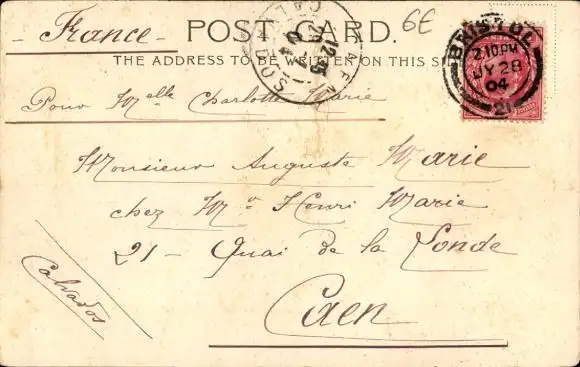 France
POST CARD.
6E
THE ADDRESS TO BE WRITTEN ON THIS S
BRISTOL
2.10.PM
JY 28
04
21
12 35
04
CAEN
CALVADOS
Pour Melle Charlotte Marie
Monsieur Auguste Marie
chez Mr Henri Marie
21 - Quai de la Londe
Caen
Calvados